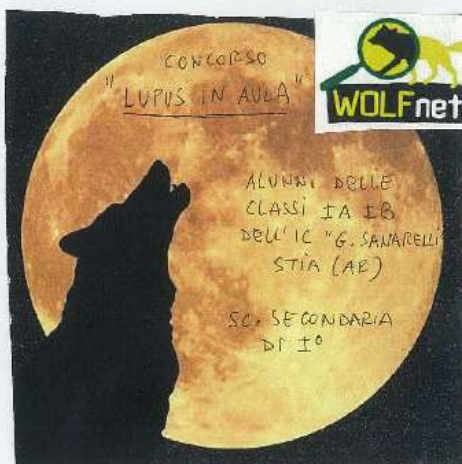 CONCORSO
"LUPUS IN AULA"
WOLFnet
ALUNNI DELLE
CLASSI IA IB
DELL'IC "G. SANARELLI
STIA (AR)
SC. SECONDARIA
DI I°